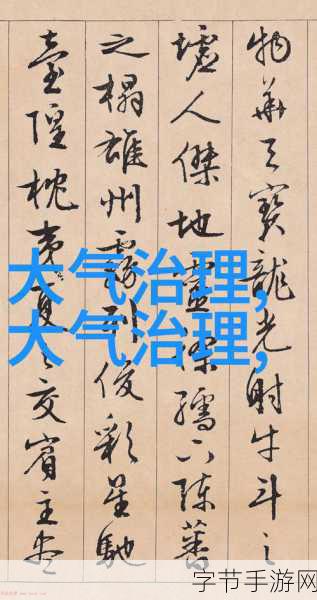 物华天宝龙光射牛斗之
墟人傑地靈徐孺下陈蕃
之榻雄州霧列俊彩星馳
臺隍枕夷夏之交賓主盡
大气治理,
大气治理,
字节手游网